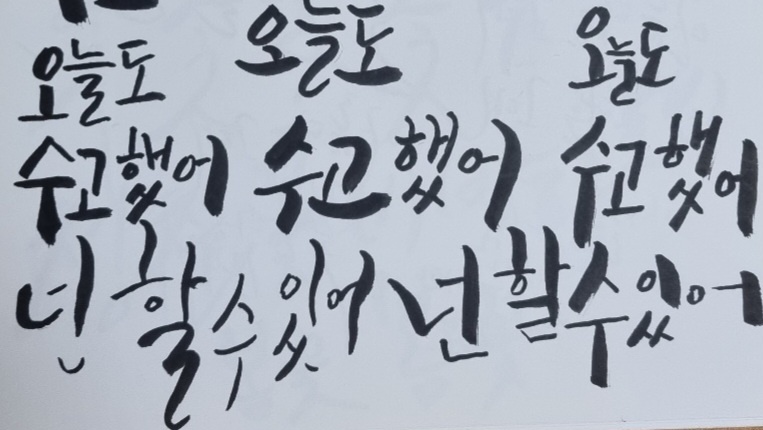 오늘도 오늘도 오늘도
수고했어 수고했어 수고했어
넌 할 수 있어 넌 할 수 있어